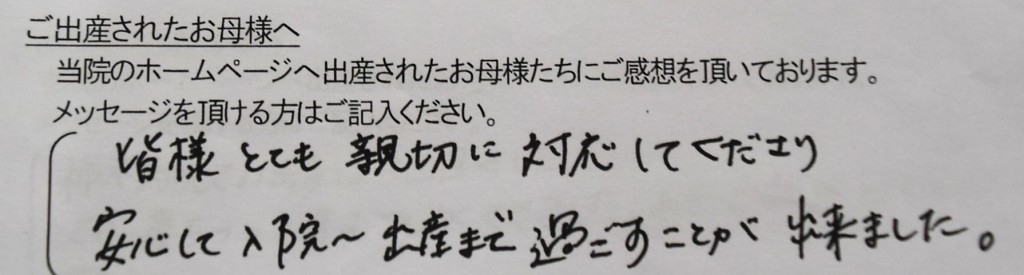 ご出産されたお母様へ
当院のホームページへ出産されたお母様たちにご感想を頂いております。
メッセージを頂ける方はご記入ください。
皆様とても親切に対応してくださり
安心して入院〜出産まで過ごすことが出来ました。